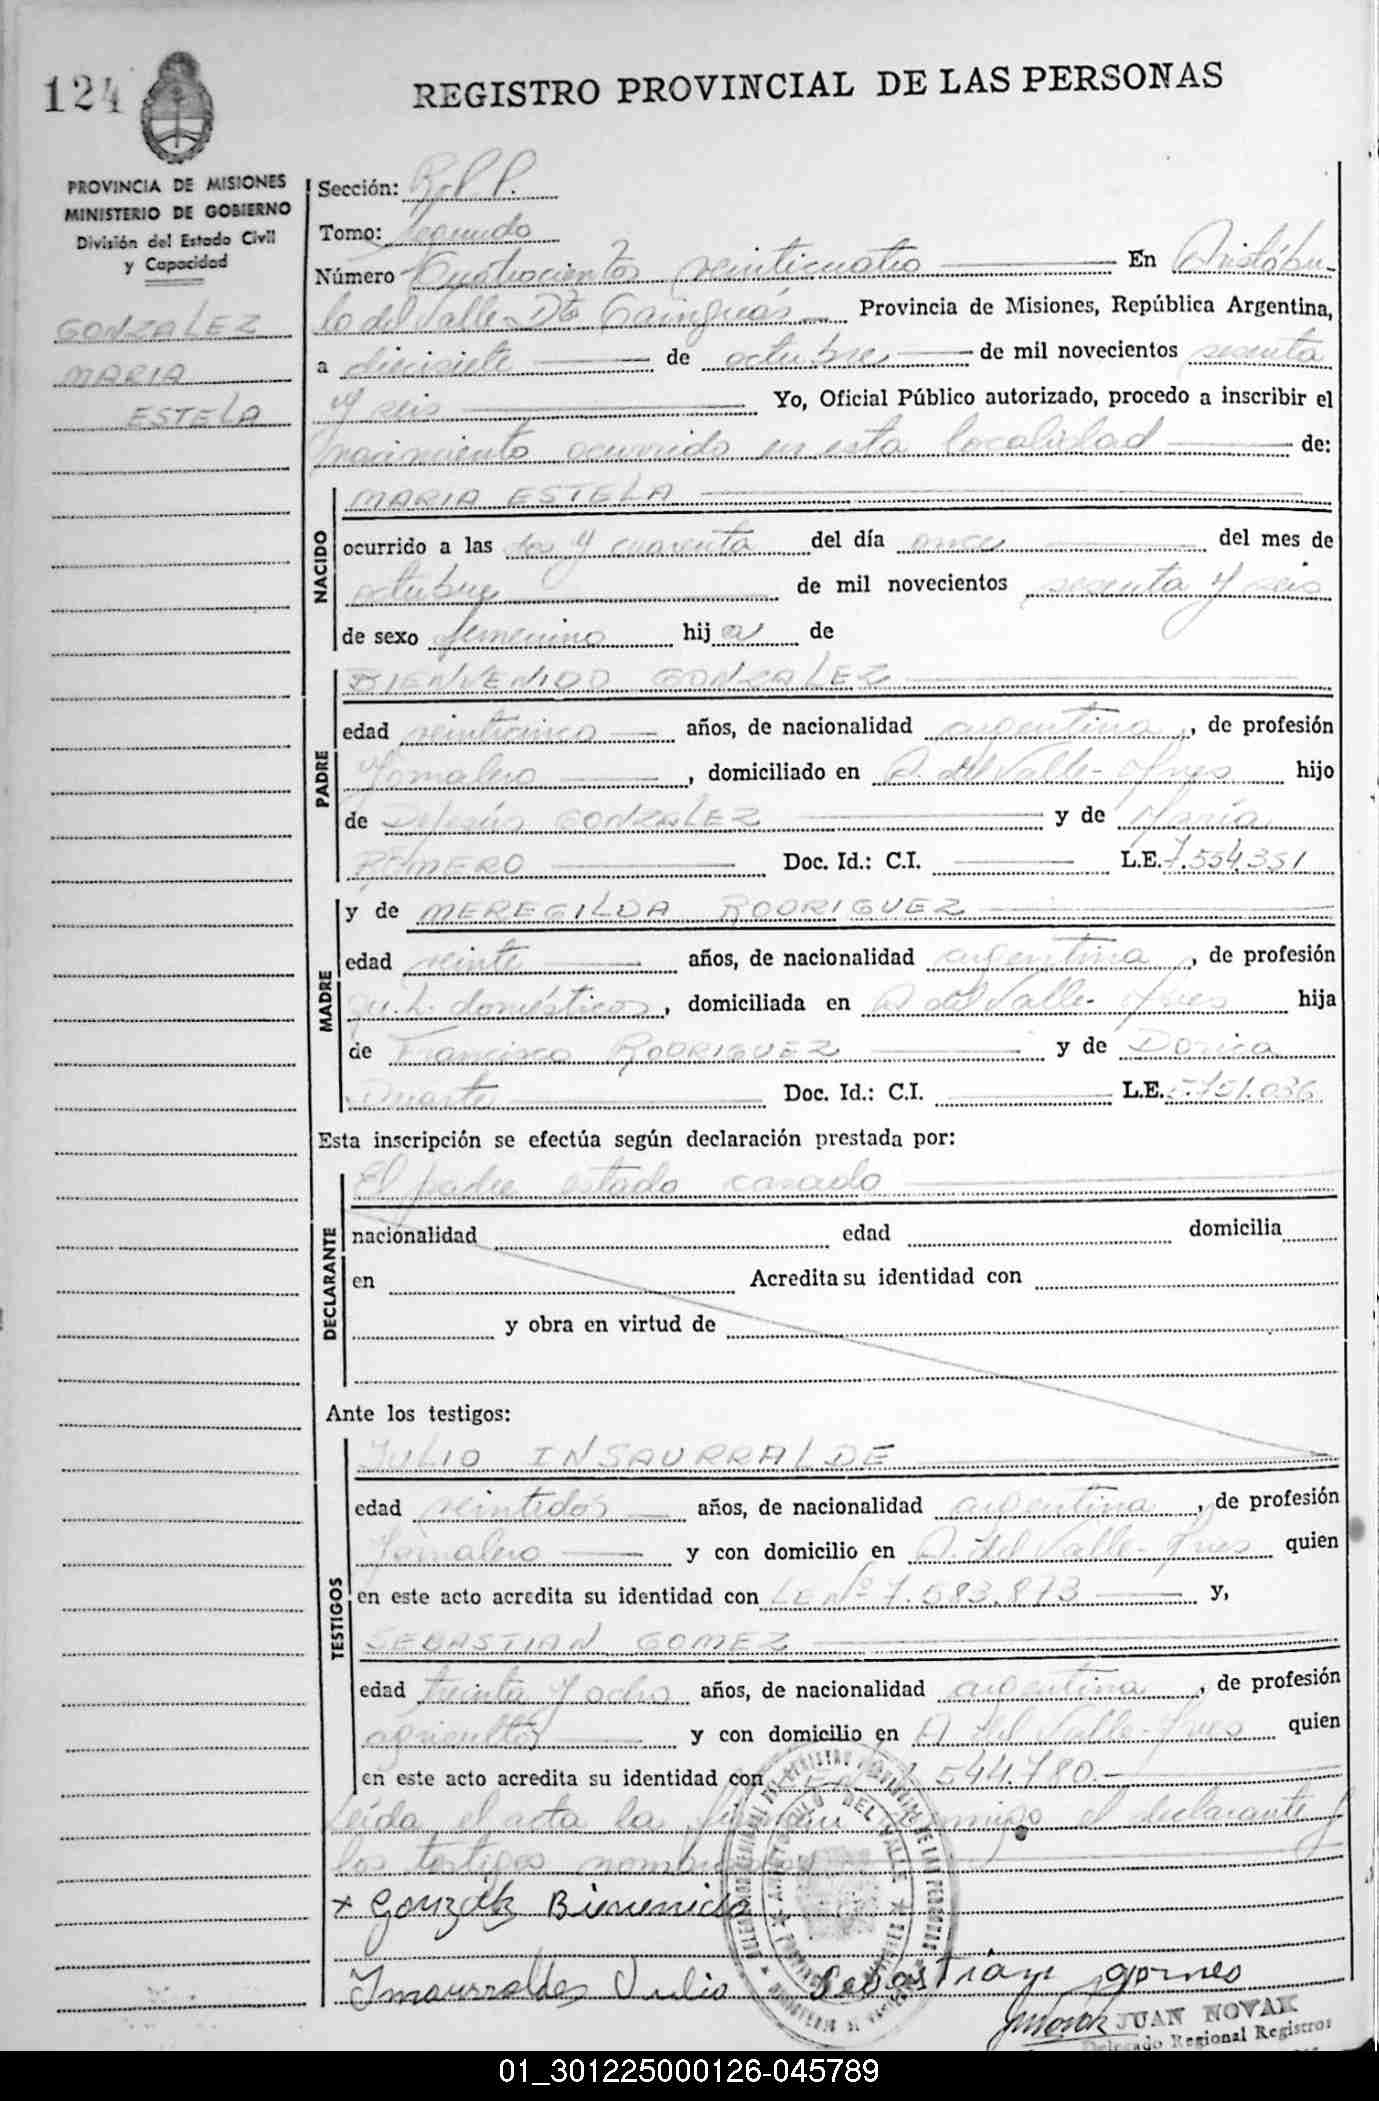 124
REGISTRO PROVINCIAL DE LAS PERSONAS
PROVINCIA DE MISIONES
MINISTERIO DE GOBIERNO
División del Estado Civil
y Capacidad
GONZALEZ
MARIA
ESTELA
Sección:
Tomo: Segundo
Número Cuatrocientos veinticuatro En Aristóbu-
lo del Valle-Dto Cainguás Provincia de Misiones, República Argentina,
a diecisiete de octubre de mil novecientos sesenta
y seis Yo, Oficial Público autorizado, procedo a inscribir el
nacimiento ocurrido en esta localidad de:
NACIDO
MARIA ESTELA
ocurrido a las dos y cuarenta del día once del mes de
octubre de mil novecientos sesenta y seis
de sexo femenino hij a de
PADRE
BIENVENIDO GONZALEZ
edad veinticinco años, de nacionalidad argentina, de profesión
Jornalero, domiciliado en A. del Valle- Mnes hijo
de Dejesús GONZALEZ y de María
ROMERO Doc. Id.: C.I. L.E. 7.554.351
MADRE
y de MEREGILDA RODRIGUEZ
edad veinte años, de nacionalidad argentina, de profesión
qu. h. domésticos, domiciliada en A. del Valle- Mnes hija
de Francisco RODRIGUEZ y de Dorica
Duarte Doc. Id.: C.I. L.E.
Esta inscripción se efectúa según declaración prestada por:
DECLARANTE
El padre estado casado
nacionalidad edad domicilia
en Acredita su identidad con
y obra en virtud de
Ante los testigos:
TESTIGOS
JULIO INSAURRALDE
edad veintidós años, de nacionalidad argentina, de profesión
Jornalero y con domicilio en A. del Valle- Mnes quien
en este acto acredita su identidad con LE Nº 7.583.873 y,
SEBASTIAN GOMEZ
edad treinta y ocho años, de nacionalidad argentina, de profesión
agricultor y con domicilio en A. del Valle- Mnes quien
en este acto acredita su identidad con 544.780.-
Leída el acta la firman conmigo el declarante y
los testigos nombrados
x Gonzalez Bienvenido
Insaurralde Julio Sebastian gomes
JUAN NOVAK
Delegado Regional Registros
01_301225000126-045789